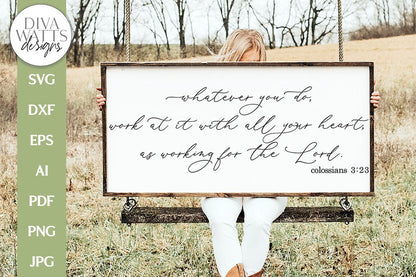 DIVA
WATTS
designs
SVG
DXF
EPS
AI
PDF
PNG
JPG
whatever you do,
work at it with all your heart,
as working for the Lord.
colossians 3:23